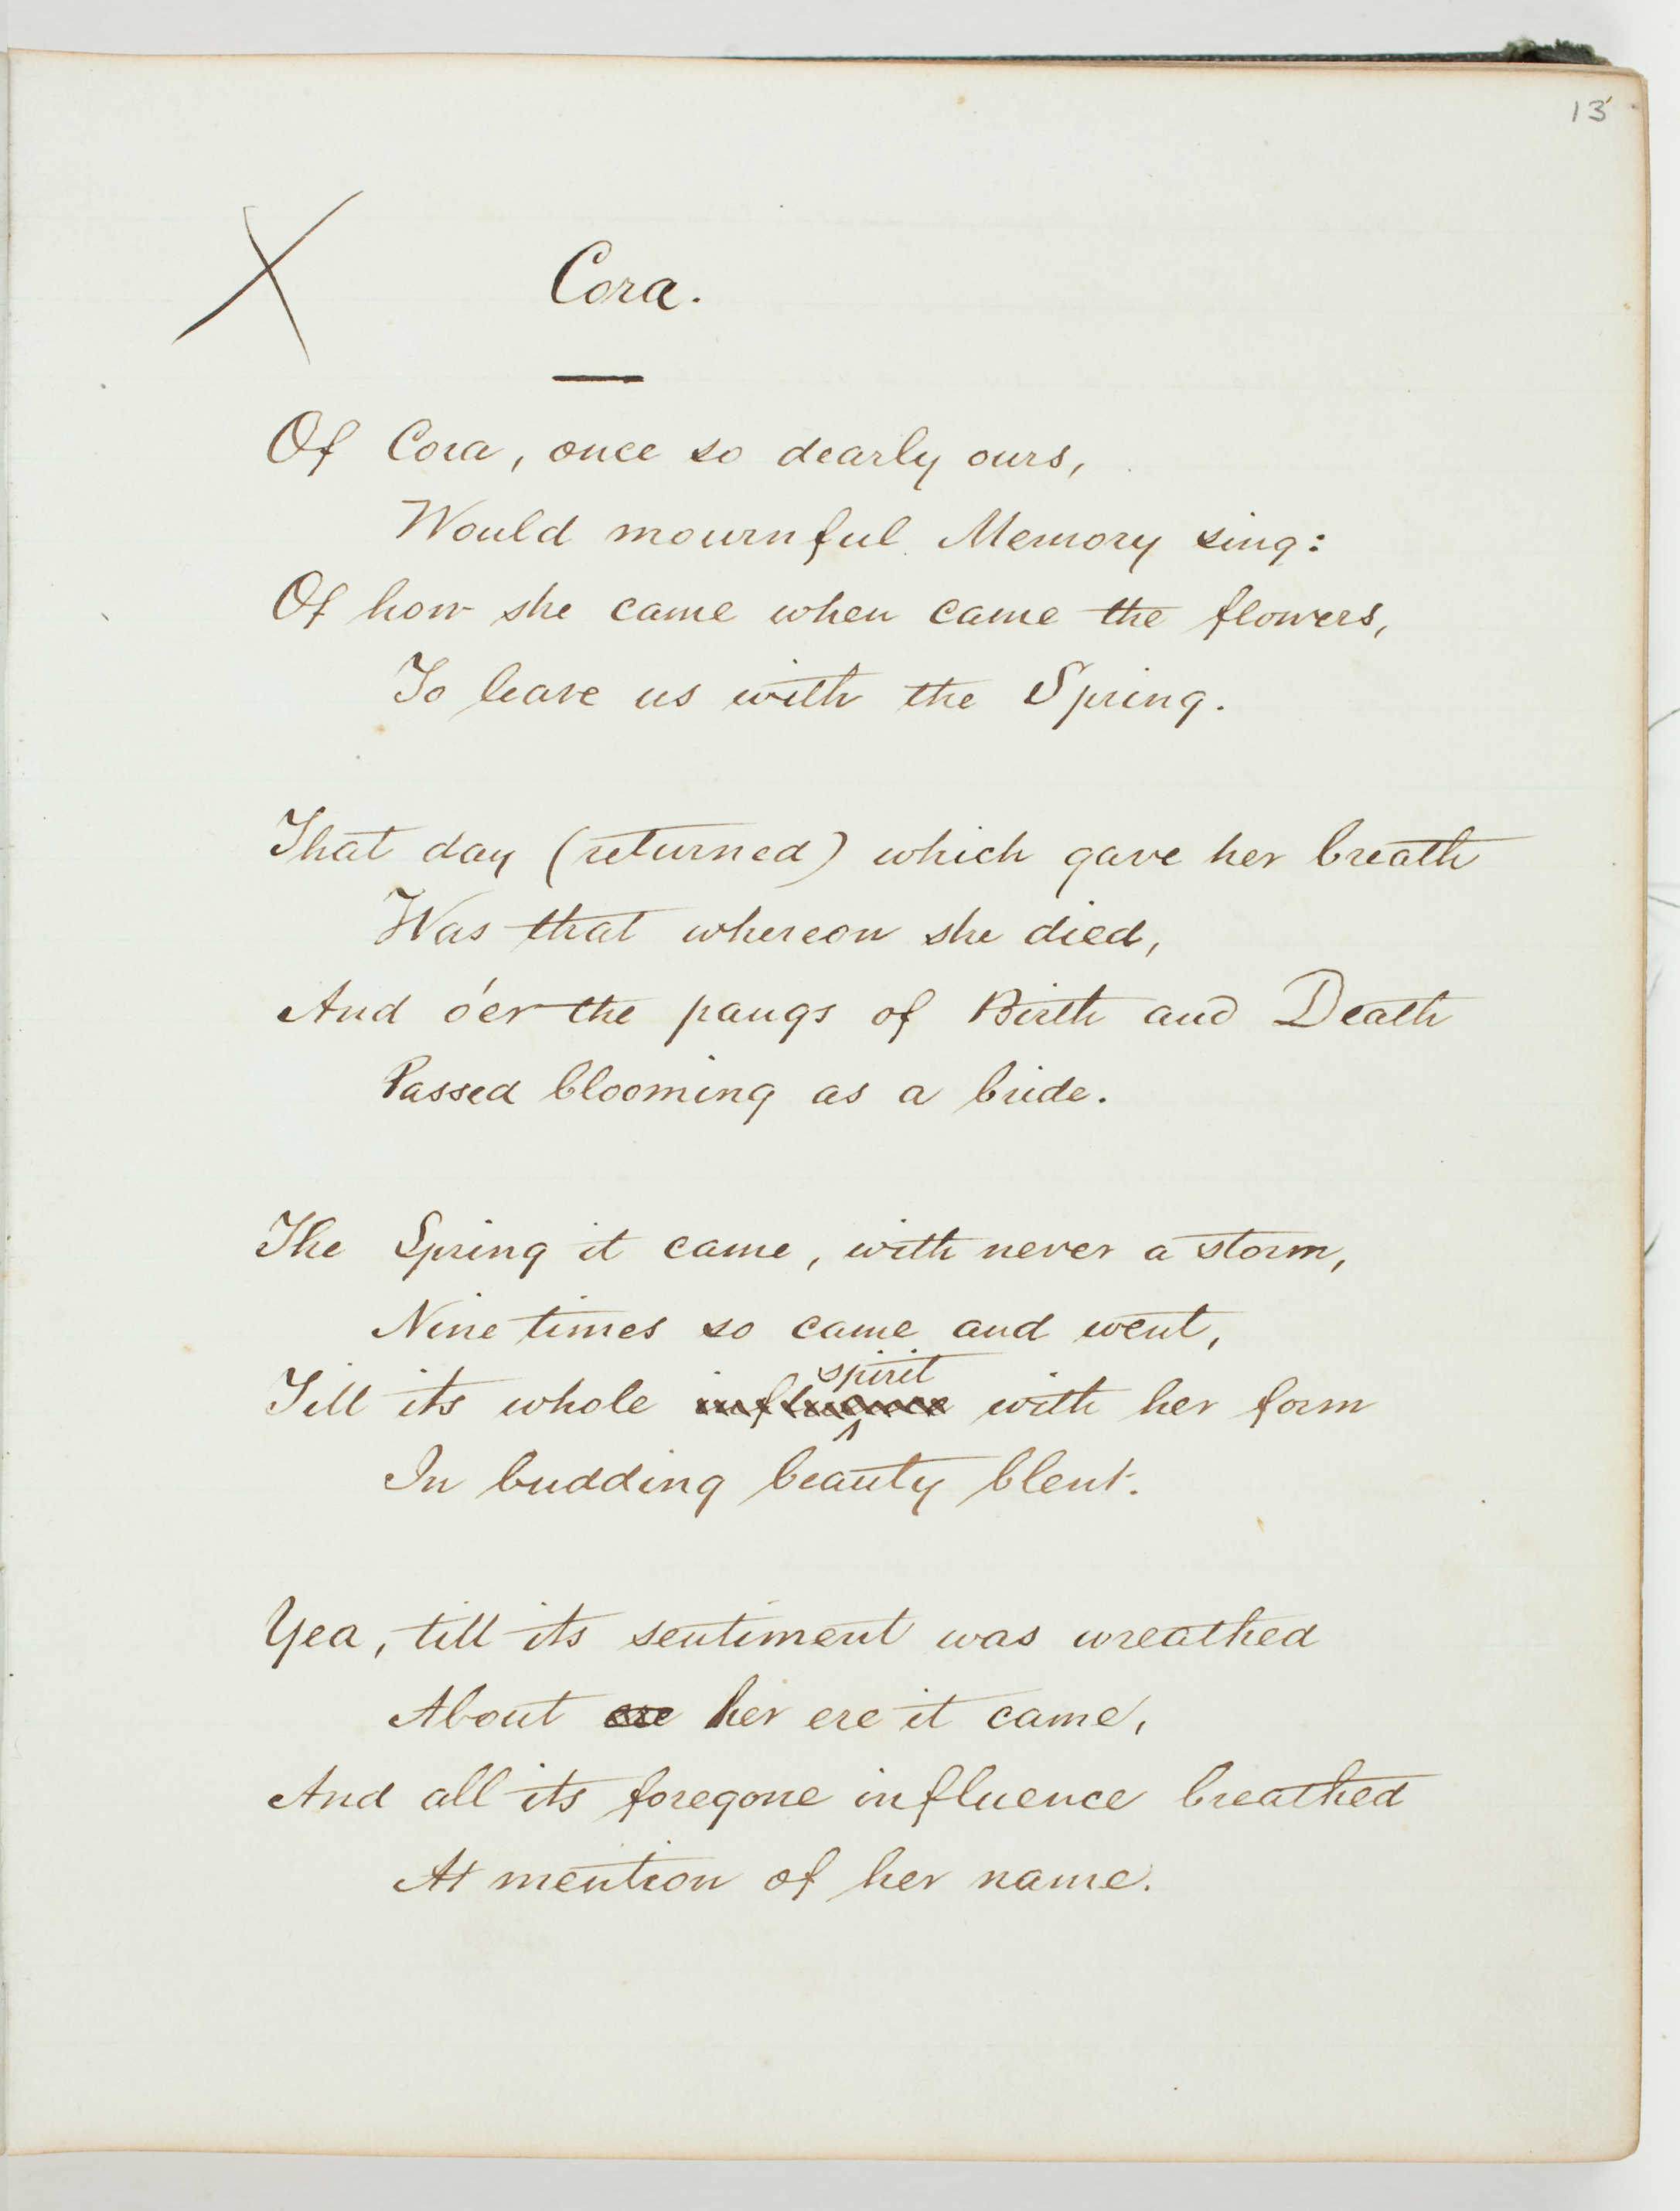 13
X
Cora.
Of Cora, once so dearly ours,
Would mournful Memory sing:
Of how she came when came the flowers,
To leave us with the Spring.
That day (returned) which gave her breath
Was that whereon she died,
And o'er the pangs of Birth and Death
Passed blooming as a bride.
The Spring it came, with never a storm,
Nine times so came and went,
spirit
Till its whole influence with her form
In budding beauty blent.
Yea, till its sentiment was wreathed
About ere her ere it came,
And all its foregone influence breathed
At mention of her name.